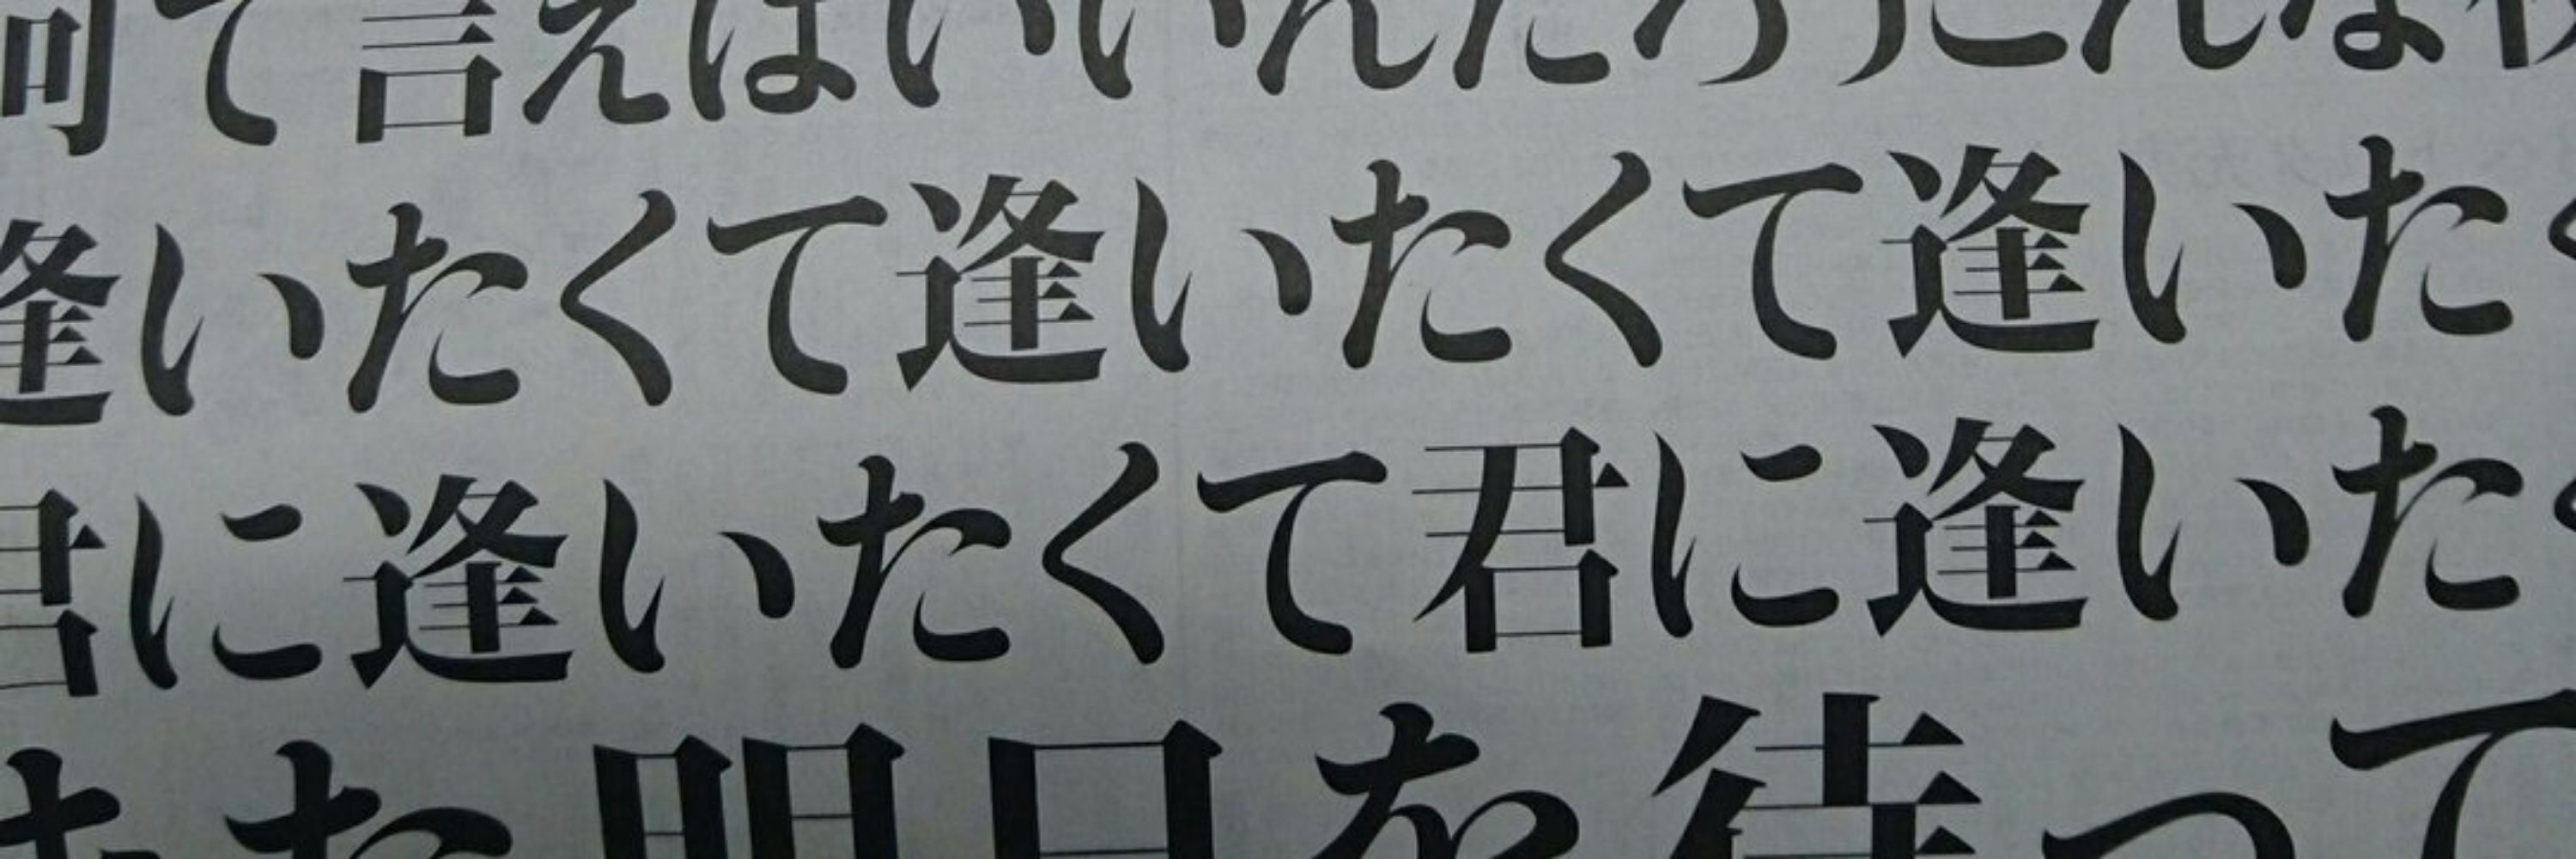 何て言えばいいんだろうこんな
逢いたくて逢いたくて逢いた
君に逢いたくて君に逢いた
また明日を待って